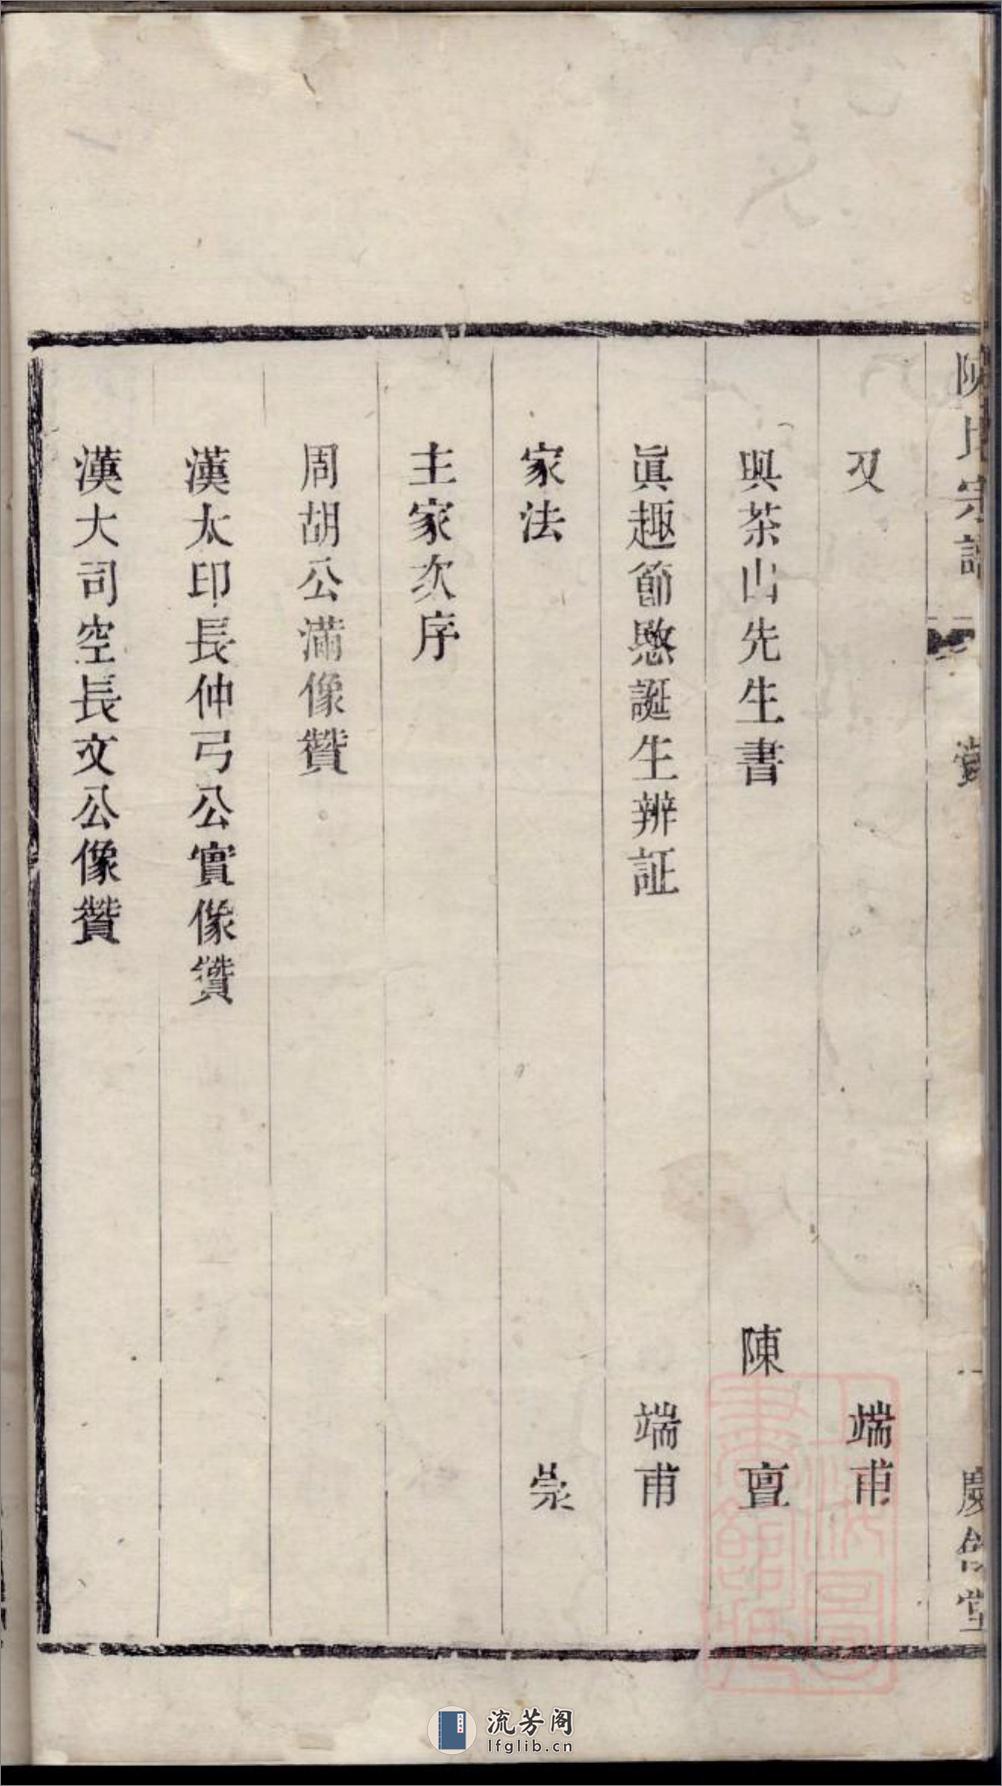 陳氏宗譜
又　端甫
與茶山先生書　陳亶
眞趣節愍誕生辨証　端甫
家法　崇
主家次序
周胡公滿像贊
漢太印長仲弓公實像贊
漢大司空長文公像贊
流芳阁
lfglib.cn